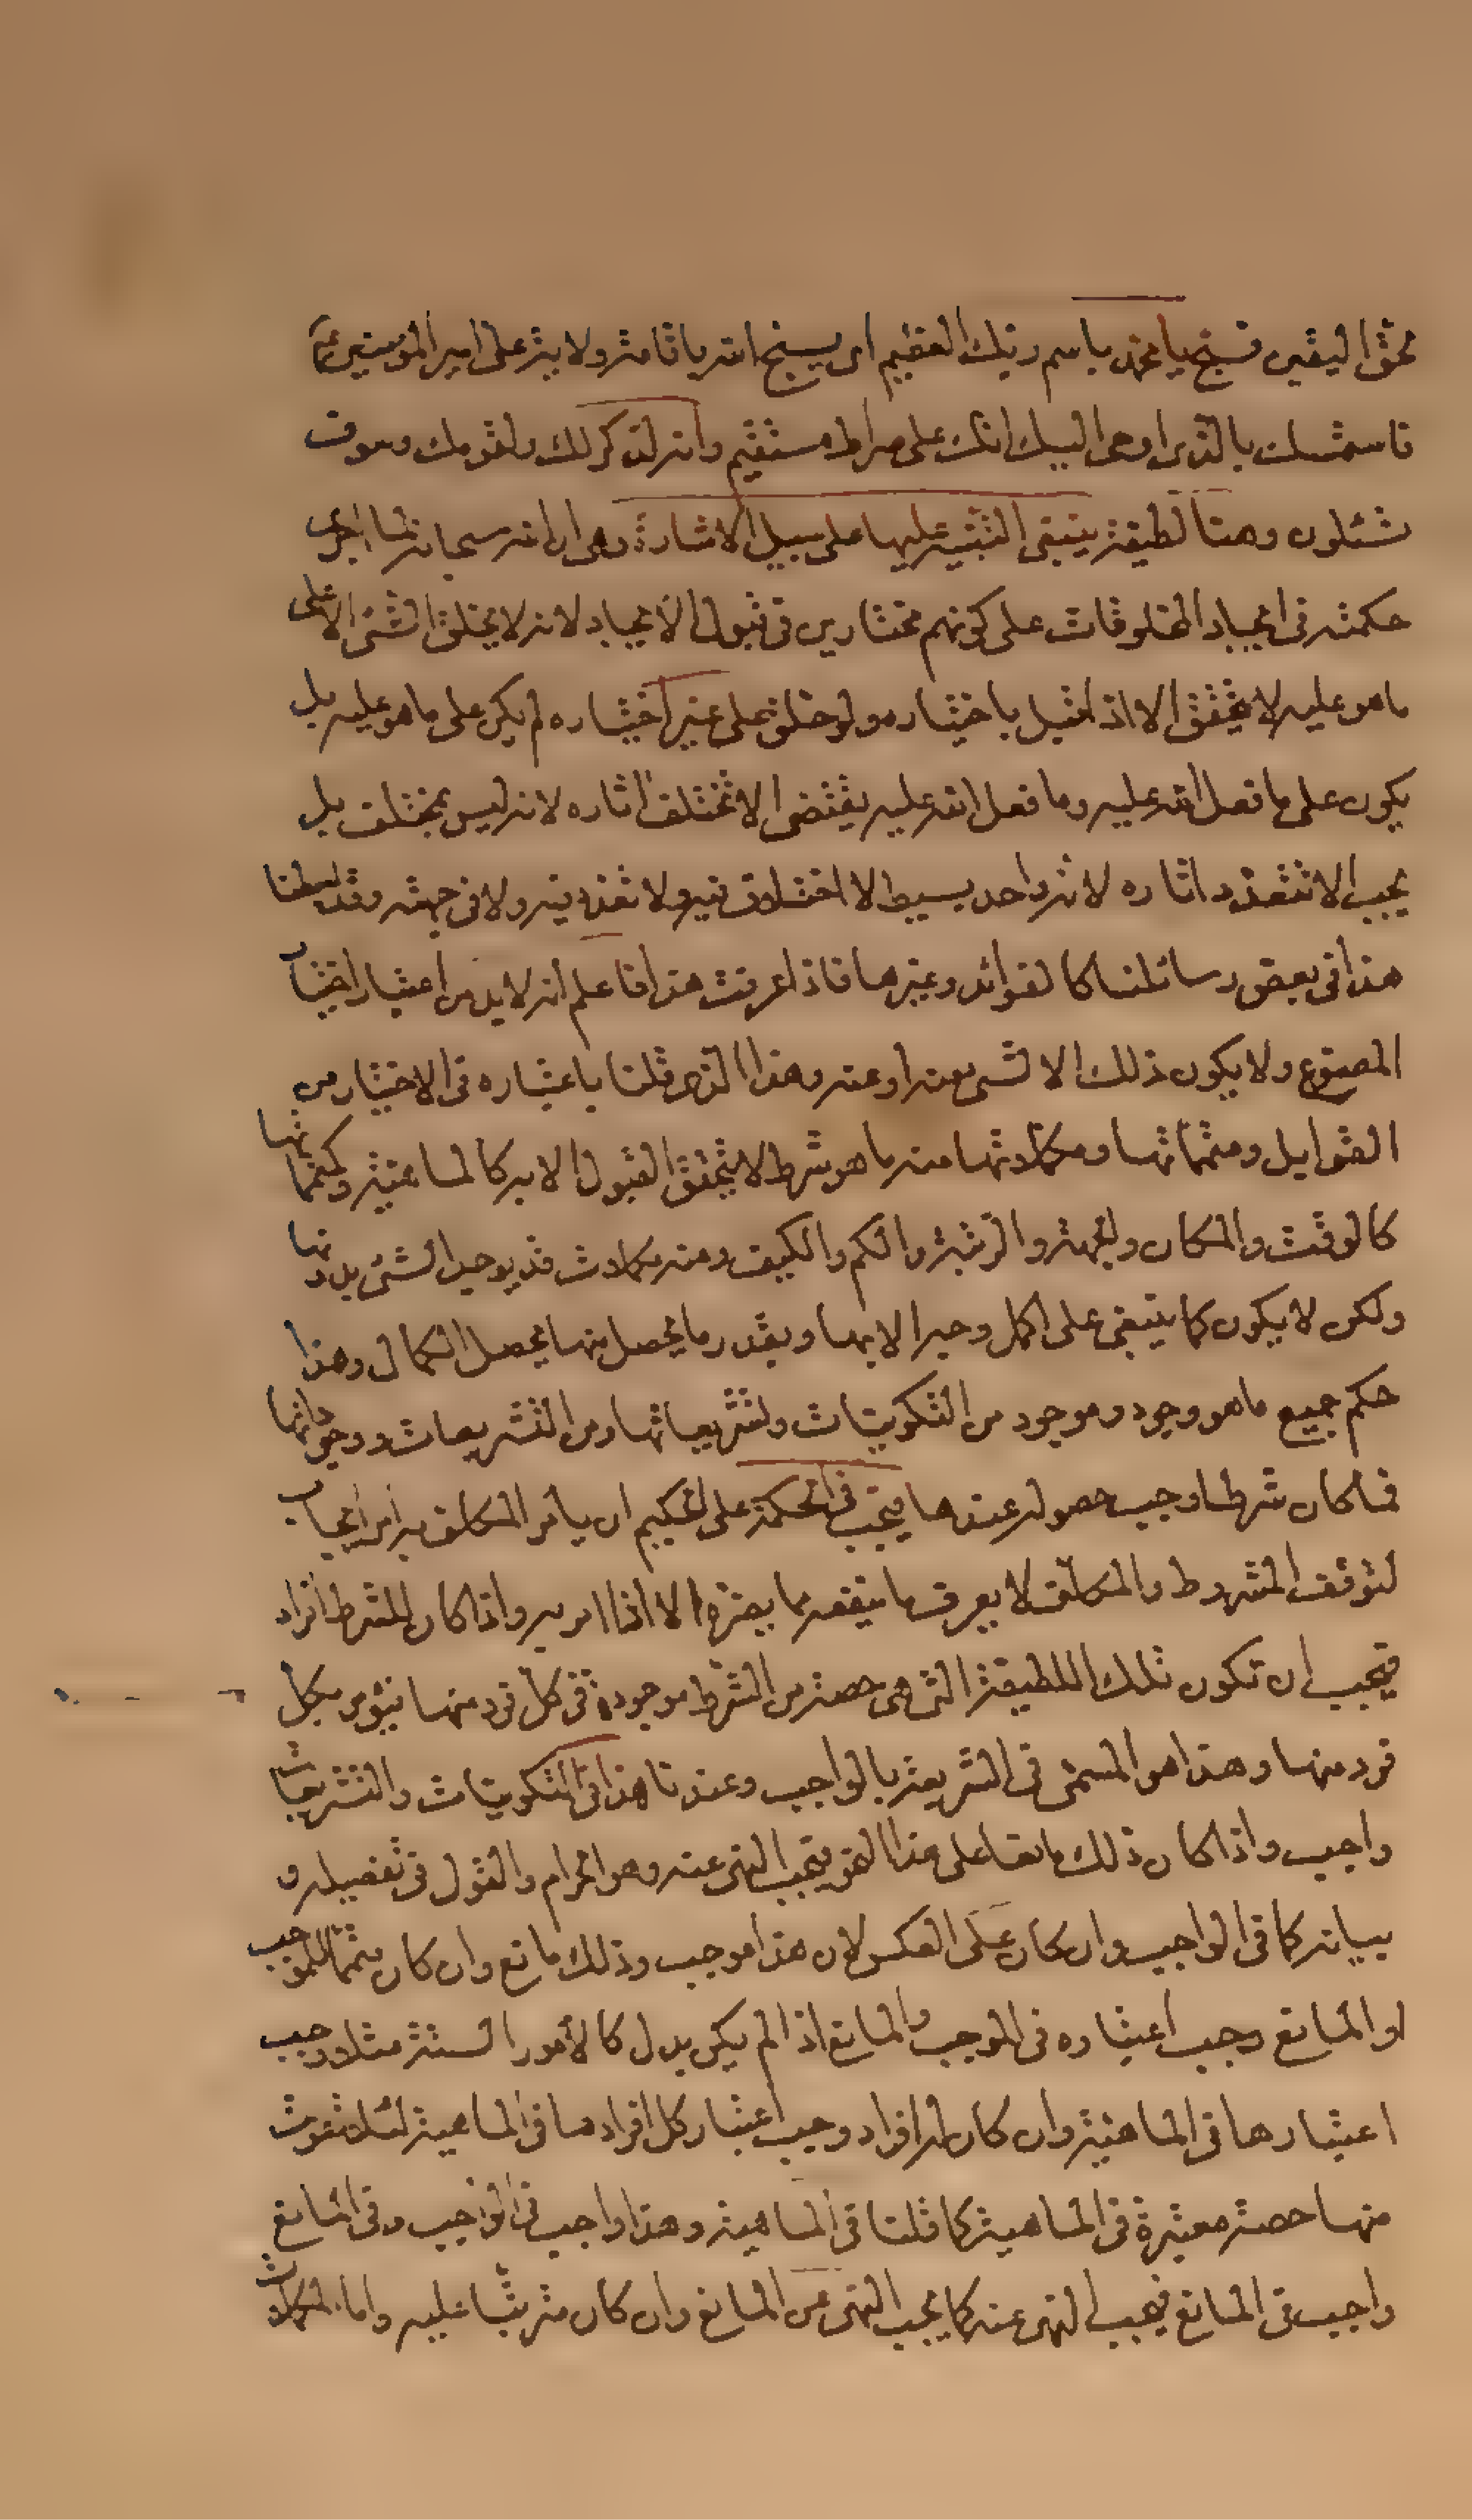 لحق اليقين فسبح يا محمد باسم ربك العظيم اى يسبح الله باقامة ولاية على امير المؤمنين ع
فاستمسك بالذى اوحى اليك انك على صراط مستقيم وانه لذكر لك ولقومك وسوف
تسئلون وهنا لطيفة ينبغى التنبيه عليها على سبيل الاشارة وهى ان الله سبحانه لما اجرى
حكمته فى ايجاد المخلوقات على كونهم مختارين فى قبول الايجاد لانه لا يخلق الشئ الا على
ما هو عليه لا يتحقق الا اذا قبل باختياره ولو خلق على غير اختياره لم يكن على ما هو عليه بل
يكون على ما فعل الله عليه وما فعل الله عليه يقتضى الا تختلف اثاره لانه ليس بمختلف بل
يجب الا تتعدد اثاره لانه واحد بسيط لا اختلاف فيه ولا تعدد فيه ولا فى جهته وقد بسطنا
هذا فى بعض رسائلنا كالفوائد وغيرها فاذا عرفت هذا فاعلم انه لا بد من اعتبار اختيار
المصنوع ولا يكون ذلك الا لشئ منه او عنه وهذا الذى قلنا باعتباره فى الاختيار من
القوابل ومتمماتها ومكملاتها منه ما هو شرط لا يتحقق القبول الا به كالماهية وكمتمماتها
كالوقت والمكان والجهة والرتبة والكم والكيف ومنه مكملات قد يوجد الشئ بدونها
ولكن لا يكون كما ينبغى على اكمل وجه الا بها وبقدر ما يحصل منها يحصل الكمال وهذا
حكم جميع ما هو وجود وموجود من التكوينات وتشريعاتها ومن التشريعات ووجوداتها
فما كان شرطا وجب حصوله عندها فيجب فى الحكمة على الحكيم ان يامر المكلف به امر ايجاب
لتوقف المشروط والمكلف لا يعرف ما ينفعه مما يضره الا اذا امر به واذا كان للشرط افراد
فيجب ان تكون تلك اللطيفة التى هى حصة من الشرط موجودة فى كل فرد منها فيؤمر بكل
فرد منها وهذا هو المسمى فى الشريعة بالواجب وعندنا هذا فى التكوينات والتشريعات
واجب واذا كان ذلك مانعا على هذا النحو فيجب النهى عنه وهو الحرام والقول فى تفصيله و
بيانه كما فى الواجب وان كان على العكس لان هذا موجب وذلك مانع وان كان متمما للموجب
او المانع وجب اعتباره فى الموجب والمانع اذا لم يكن بدل كالأمور الستة مثلا وجب
اعتبارها فى الماهية وان كان له افراد وجب اعتبار كل افرادها فى الماهية لئلا تفوت
منها حصة معتبرة فى الماهية كما قلنا فى الماهية وهذا واجب فى الواجب وفى المانع
واجب فى المانع فيجب النهى عنه كما يجب النهى عن المانع وان كان مترتبا عليه واما المكملات